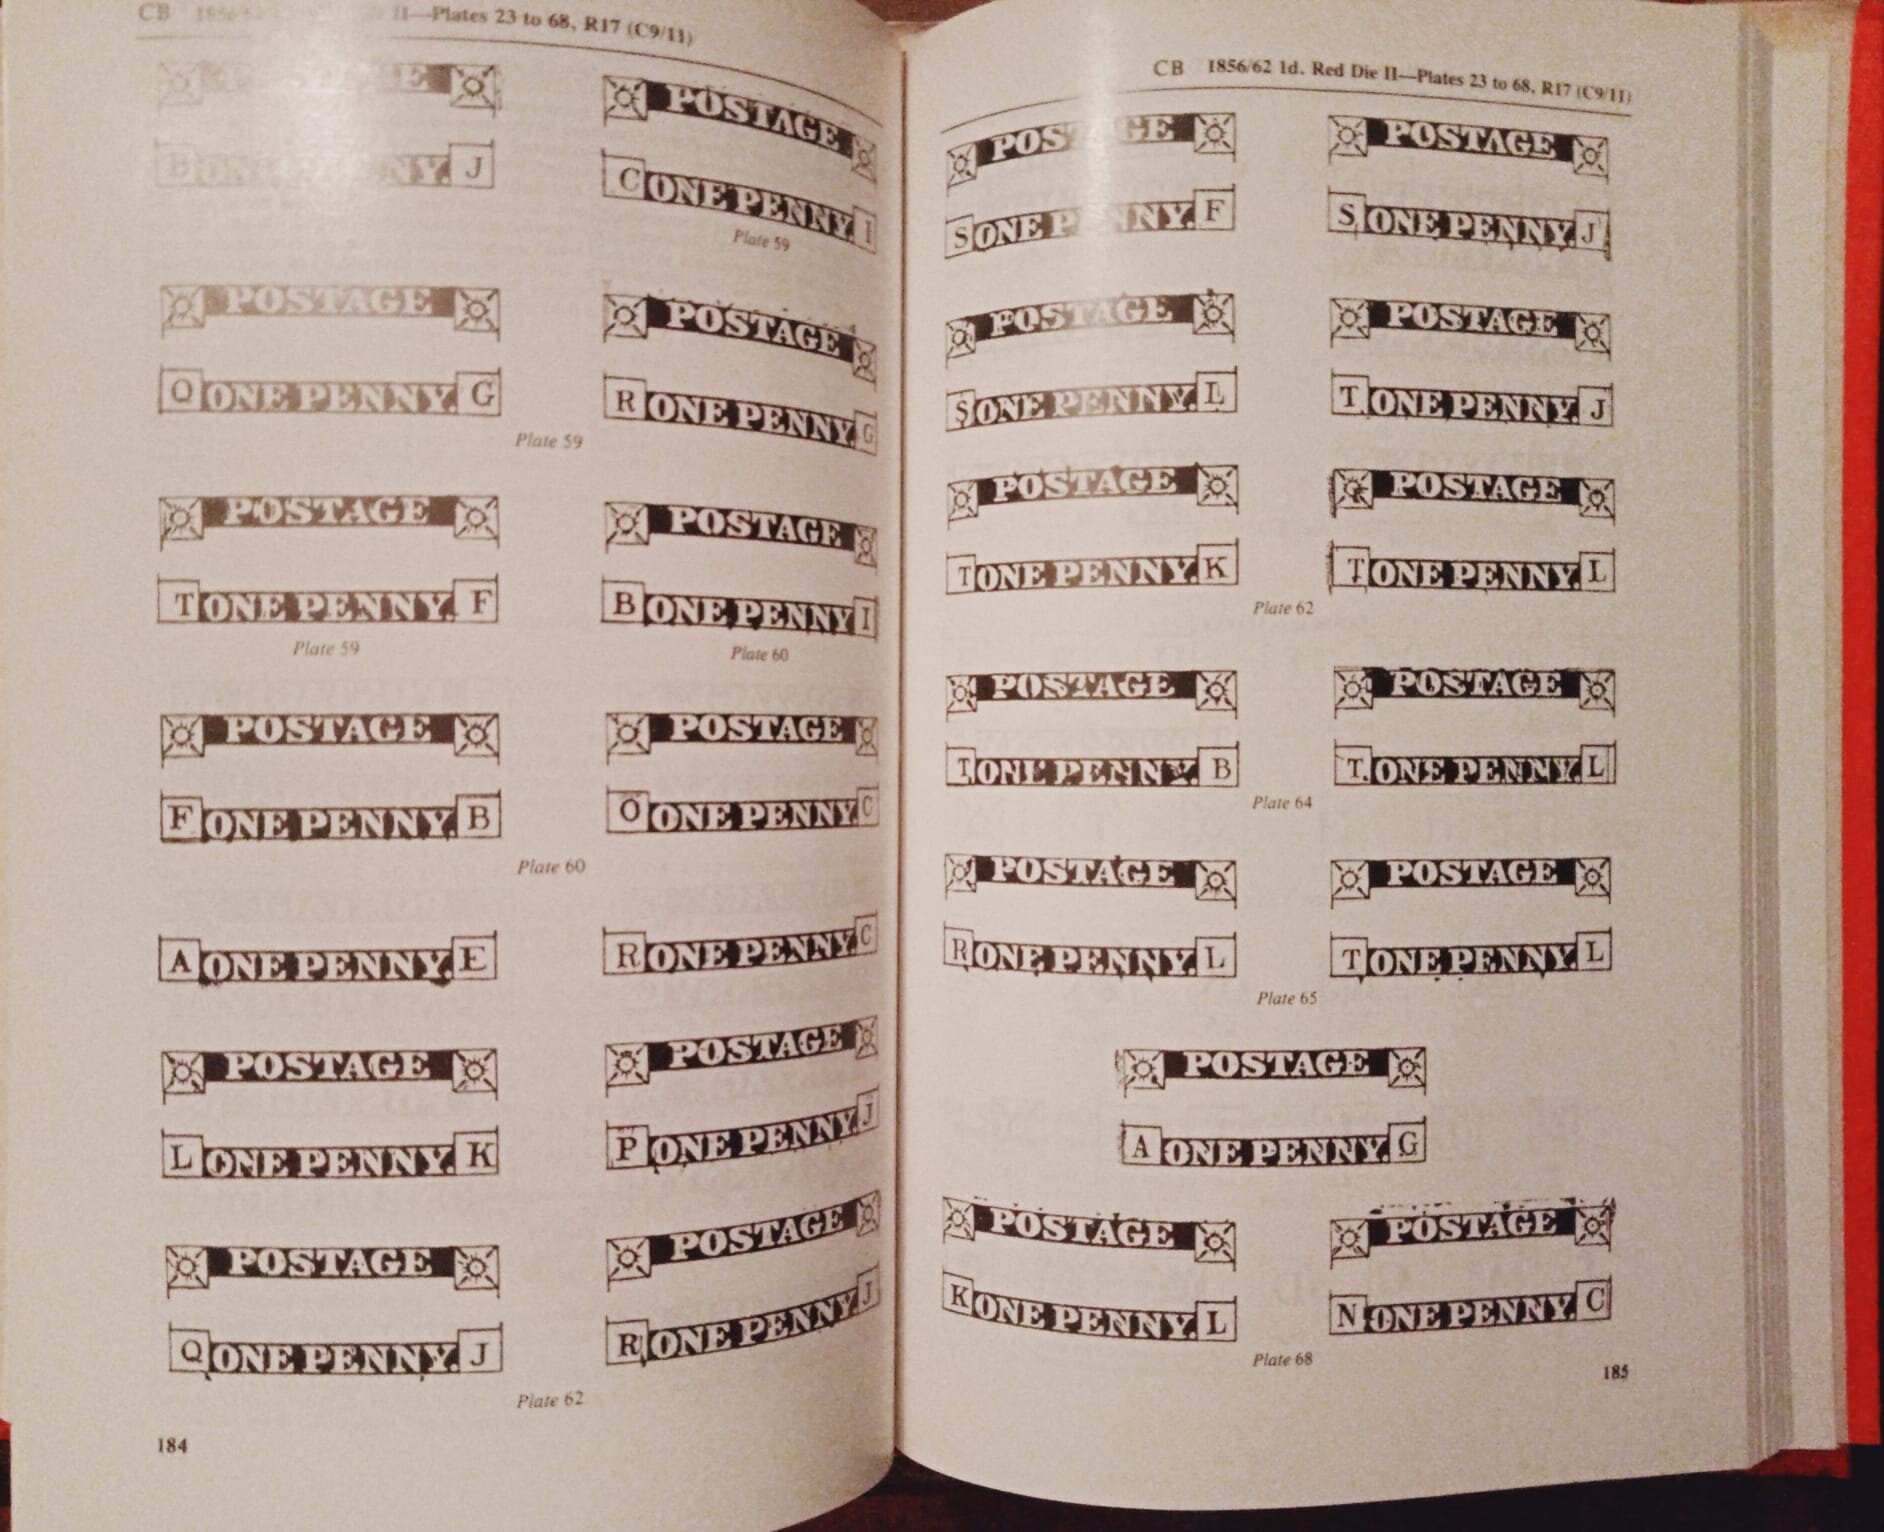 CB 1856/62 II—Plates 23 to 68, R17 (C9/11)
POSTAGE POSTAGE
ONE PENNY. J C ONE PENNY. I
Plate 59
POSTAGE POSTAGE
Q ONE PENNY. G R ONE PENNY. G
Plate 59
POSTAGE POSTAGE
T ONE PENNY. F B ONE PENNY I
Plate 59 Plate 60
POSTAGE POSTAGE
F ONE PENNY. B O ONE PENNY. C
Plate 60
A ONE PENNY. E R ONE PENNY. C
POSTAGE POSTAGE
L ONE PENNY. K P ONE PENNY. J
POSTAGE POSTAGE
Q ONE PENNY. J R ONE PENNY. J
Plate 62
184
CB 1856/62 1d. Red Die II—Plates 23 to 68, R17 (C9/11)
POSTAGE POSTAGE
S ONE PENNY. F S ONE PENNY. J
POSTAGE POSTAGE
S ONE PENNY. L T ONE PENNY. J
POSTAGE POSTAGE
T ONE PENNY. K T ONE PENNY. L
Plate 62
POSTAGE POSTAGE
T ONE PENNY. B T ONE PENNY. L
Plate 64
POSTAGE POSTAGE
R ONE PENNY. L T ONE PENNY. L
Plate 65
POSTAGE
A ONE PENNY. G
POSTAGE POSTAGE
K ONE PENNY. L N ONE PENNY. C
Plate 68
185